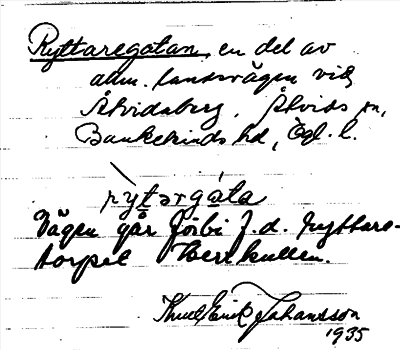 Ryttaregatan, en del av
allm. landsvägen vid
Åtvidaberg, Åtvids sn,
Bankekinds hd, Ögl. l.
rytərgata
Vägen går förbi f.d. ryttare-
torpet Berrkullen.
Knut Erik Johansson
1935